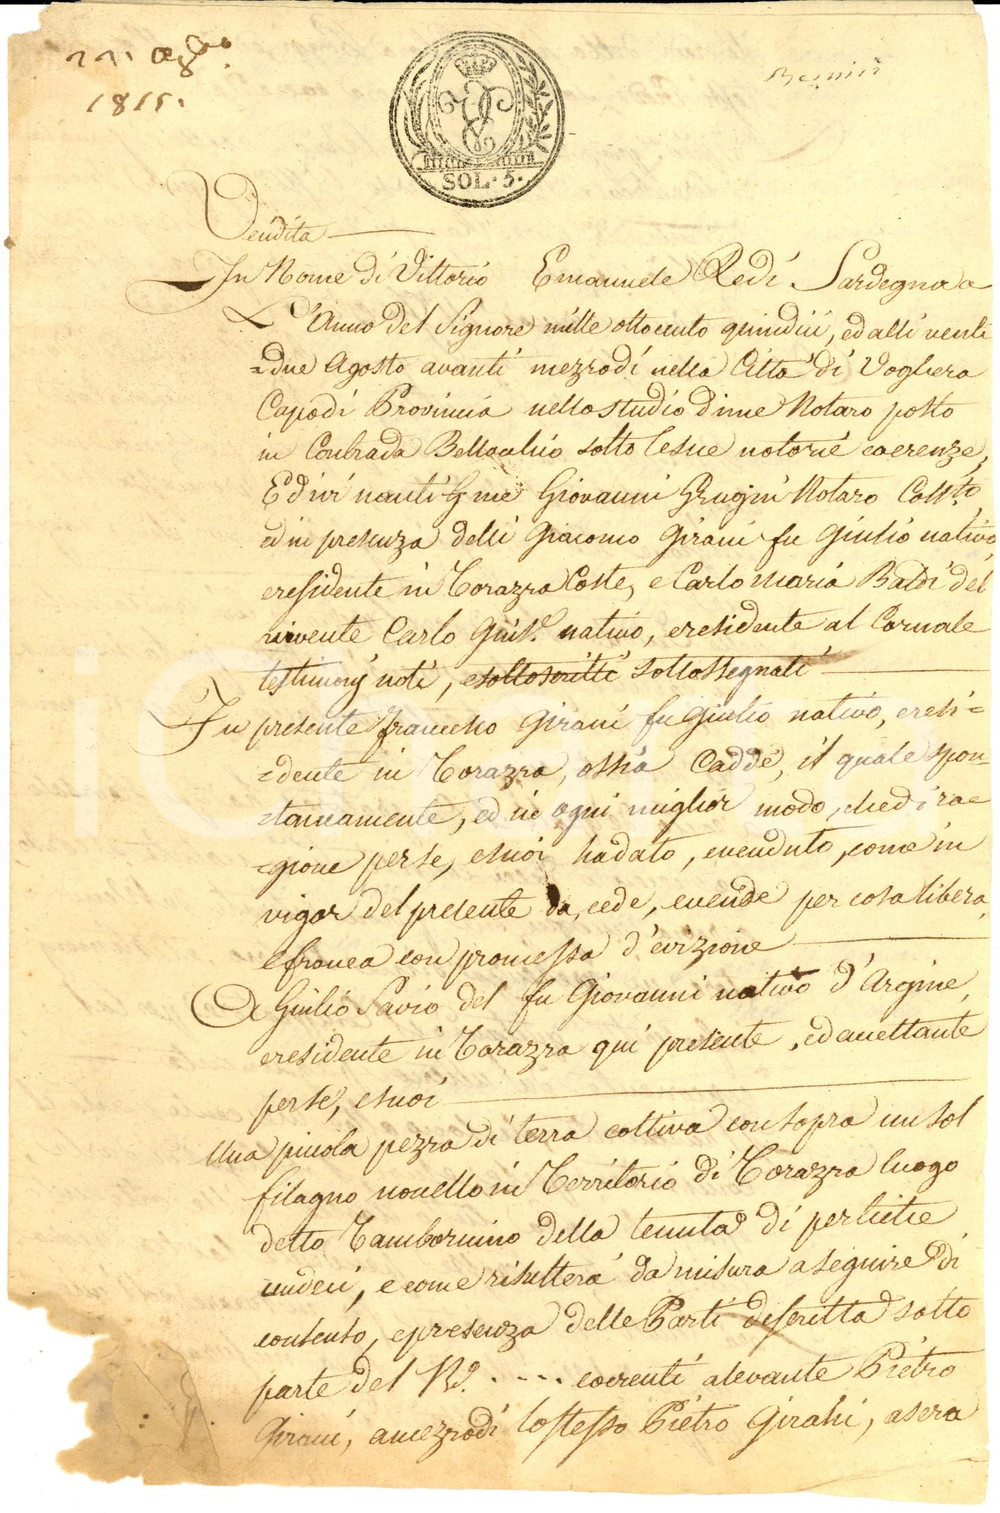 22 Agto
1815.
SOL. 5.
Vendita
In Nome di Vittorio Emanuele Re di Sardegna
L'Anno del Signore mille ottocento quindici, ed alli venti
=due Agosto avanti mezzodì nella Città di Voghera
Capo di Provincia nello studio di me Notaro posto
in Contrada Bellocchio sotto le sue notorie coerenze,
Ed ivi nanti di me Giovanni Notaro
ed in presenza delli Giacomo Girani fu Giulio nativo,
e residente in Torazza Coste, e Carlo Maria Baldi del
vivente Carlo Gius.e nativo, e residente al Cornale
testimonj noti, e sottoscritti sottossegnati
In presente Francesco Girani fu Giulio nativo, e resi=
=dente in Torazza, ossia Cadde, il quale spon=
=taneamente, ed in ogni miglior modo, che di ra=
=gione per se, e suoi ha dato, e venduto, come in
vigor del presente da, cede, e vende per cosa libera,
e franca con promessa d'evizione
A Giulio Savio del fu Giovanni nativo d'Argine,
e residente in Torazza qui presente, ed accettante
per se, e suoi
Una piccola pezza di terra coltiva con sopra un sol
filagno novello in Territorio di Torazza luogo
detto Tambornino della tenuta di pertiche
undeci, e come risulterà da misura a seguire di
contento, e presenza delle Parti descritta sotto
parte del N.o .... coerenti a levante Pietro
Girani, a mezzodì lo stesso Pietro Girani, a sera